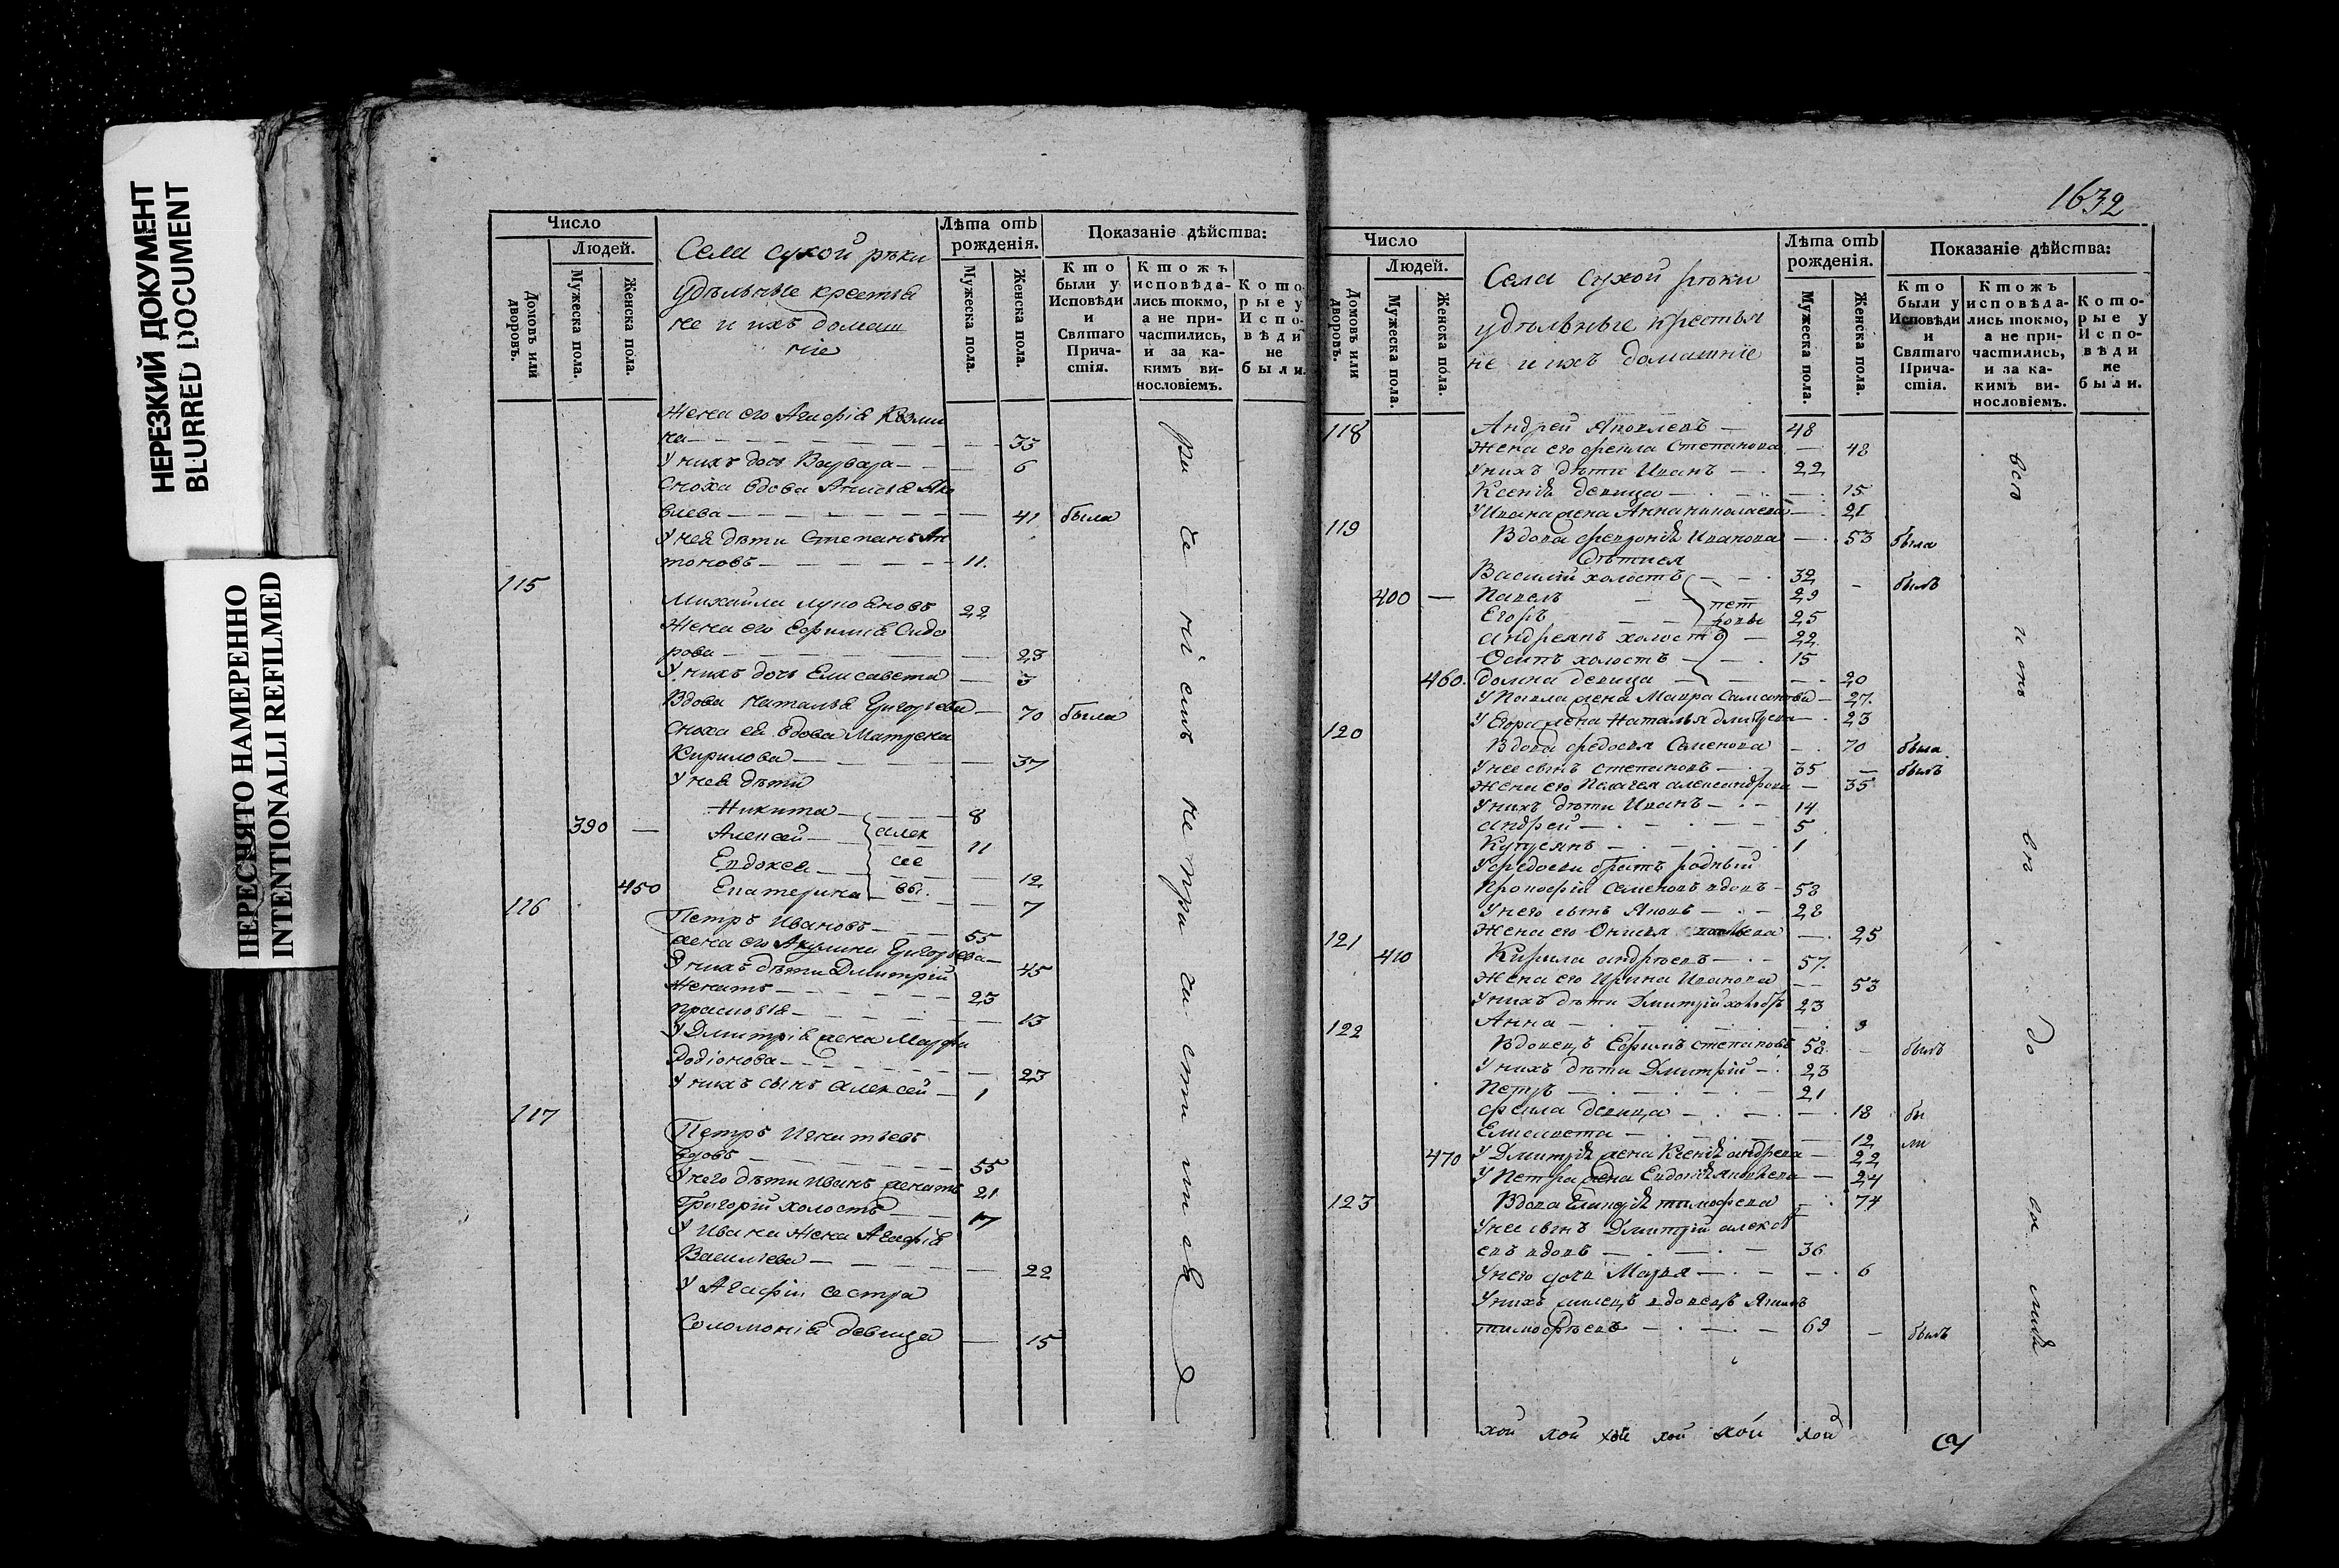 НЕРЕЗКИЙ ДОКУМЕНТ
BLURRED DOCUMENT
ПЕРЕСНЯТО НАМЕРЕННО
INTENTIONALLI REFILMED
Число
Людей.
Домовъ или дворовъ.
Мужеска пола.
Женска пола.
Села сухой рѣки
удѣльные крестья
не и ихъ домаш
ніе
Лѣта отъ рожденія.
Мужеска пола.
Женска пола.
Показаніе дѣйства:
Кто были у Исповѣди и Святаго Прича-стія.
Ктожъ исповѣда-лись токмо, а не при-частились, и за ка-кимъ ви-нословіемъ.
Кото рые у Испо-вѣди не были.
Жена его Агафія Козми
на 33
У нихъ дочь Варвара 6
Сноха вдова Анисья Яко
влева 41 была
У нея дѣти Степанъ Ан
тоновъ 11
115
Михайла 22
Жена его Ефимія Сидо
рова 23
У нихъ дочь Елисавета 3
Вдова Наталья Григорьева 70 была
Сноха ея вдова Матрена
Кирилова 37
У нея дѣти
Никита 8
390 Алексей алек 11
Евдокея сее 12
450 Екатерина вы 7
116
Петръ Ивановъ 55
жена его Акулина Григорьева 45
У нихъ дѣти Дмитрій
женатъ 23
Прасковья 13
У Дмитрія жена Марфа
Родіонова 23
У нихъ сынъ Алексей 1
117
Петръ Игнатьевъ
вдовъ 55
У него дѣти Иванъ женатъ 21
Григорій холостъ 17
У Ивана жена Агафія
Васильева 22
У Агафіи сестра
Соломонія девица 15
1632
Число
Людей.
Домовъ или дворовъ.
Мужеска пола.
Женска пола.
Села сухой рѣки
удѣльные крестья
не и ихъ домашніе
Лѣта отъ рожденія.
Мужеска пола.
Женска пола.
Показаніе дѣйства:
Кто были у Исповѣди и Святаго Прича-стія.
Ктожъ исповѣда-лись токмо, а не при-частились, и за ка-кимъ ви-нословіемъ.
Кото-рые у Испо-вѣди не были.
118 Андрей Яковлевъ 48
Жена его Фекла Степанова 48
У нихъ дѣти Иванъ 22
Ксенія девица 15
У Ивана жена Анна николаева 21
119 Вдова Февронія Иванова 53 была
дѣти ея
Василій холостъ 32 былъ
400 Павелъ пет 29
Егоръ ровы 25
андреянъ холостъ 22
Осипъ холостъ 15
460 домна девица 20
У Павла жена Мавра Самсонова 27
У Егора жена Наталья 23
120 Вдова Федосья Семенова 70 была
У нее сынъ степановъ 35 былъ
Жена его Пелагея александрова 35
У нихъ дѣти Иванъ 14
андрей 5
Купреянъ 1
У Федосьи братъ родный
Прокофій Семеновъ вдовъ 53
У него сынъ Яковъ 28
Жена его 25
121 410 Кирила андреевъ 57
Жена его Ирина Иванова 53
У нихъ дѣти Дмитрій холостъ 23
Анна 9
122 Вдовецъ Ефимъ степановъ 58 былъ
У нихъ дѣти Дмитрій 23
Петръ 21
Фекла девица 18 бы
Елисавета 12 ли
470 У Дмитрія жена Ксенія андреева 22
У Петра жена Евдокія яковлева 24
123 Вдова тимофеева 74
У нее сынъ Дмитрій алексѣ
евъ вдовъ 36
У него дочь Марья 6
У нихъ вдовецъ
тимофеевъ 69 былъ
хой хой хой хой хой хой
су